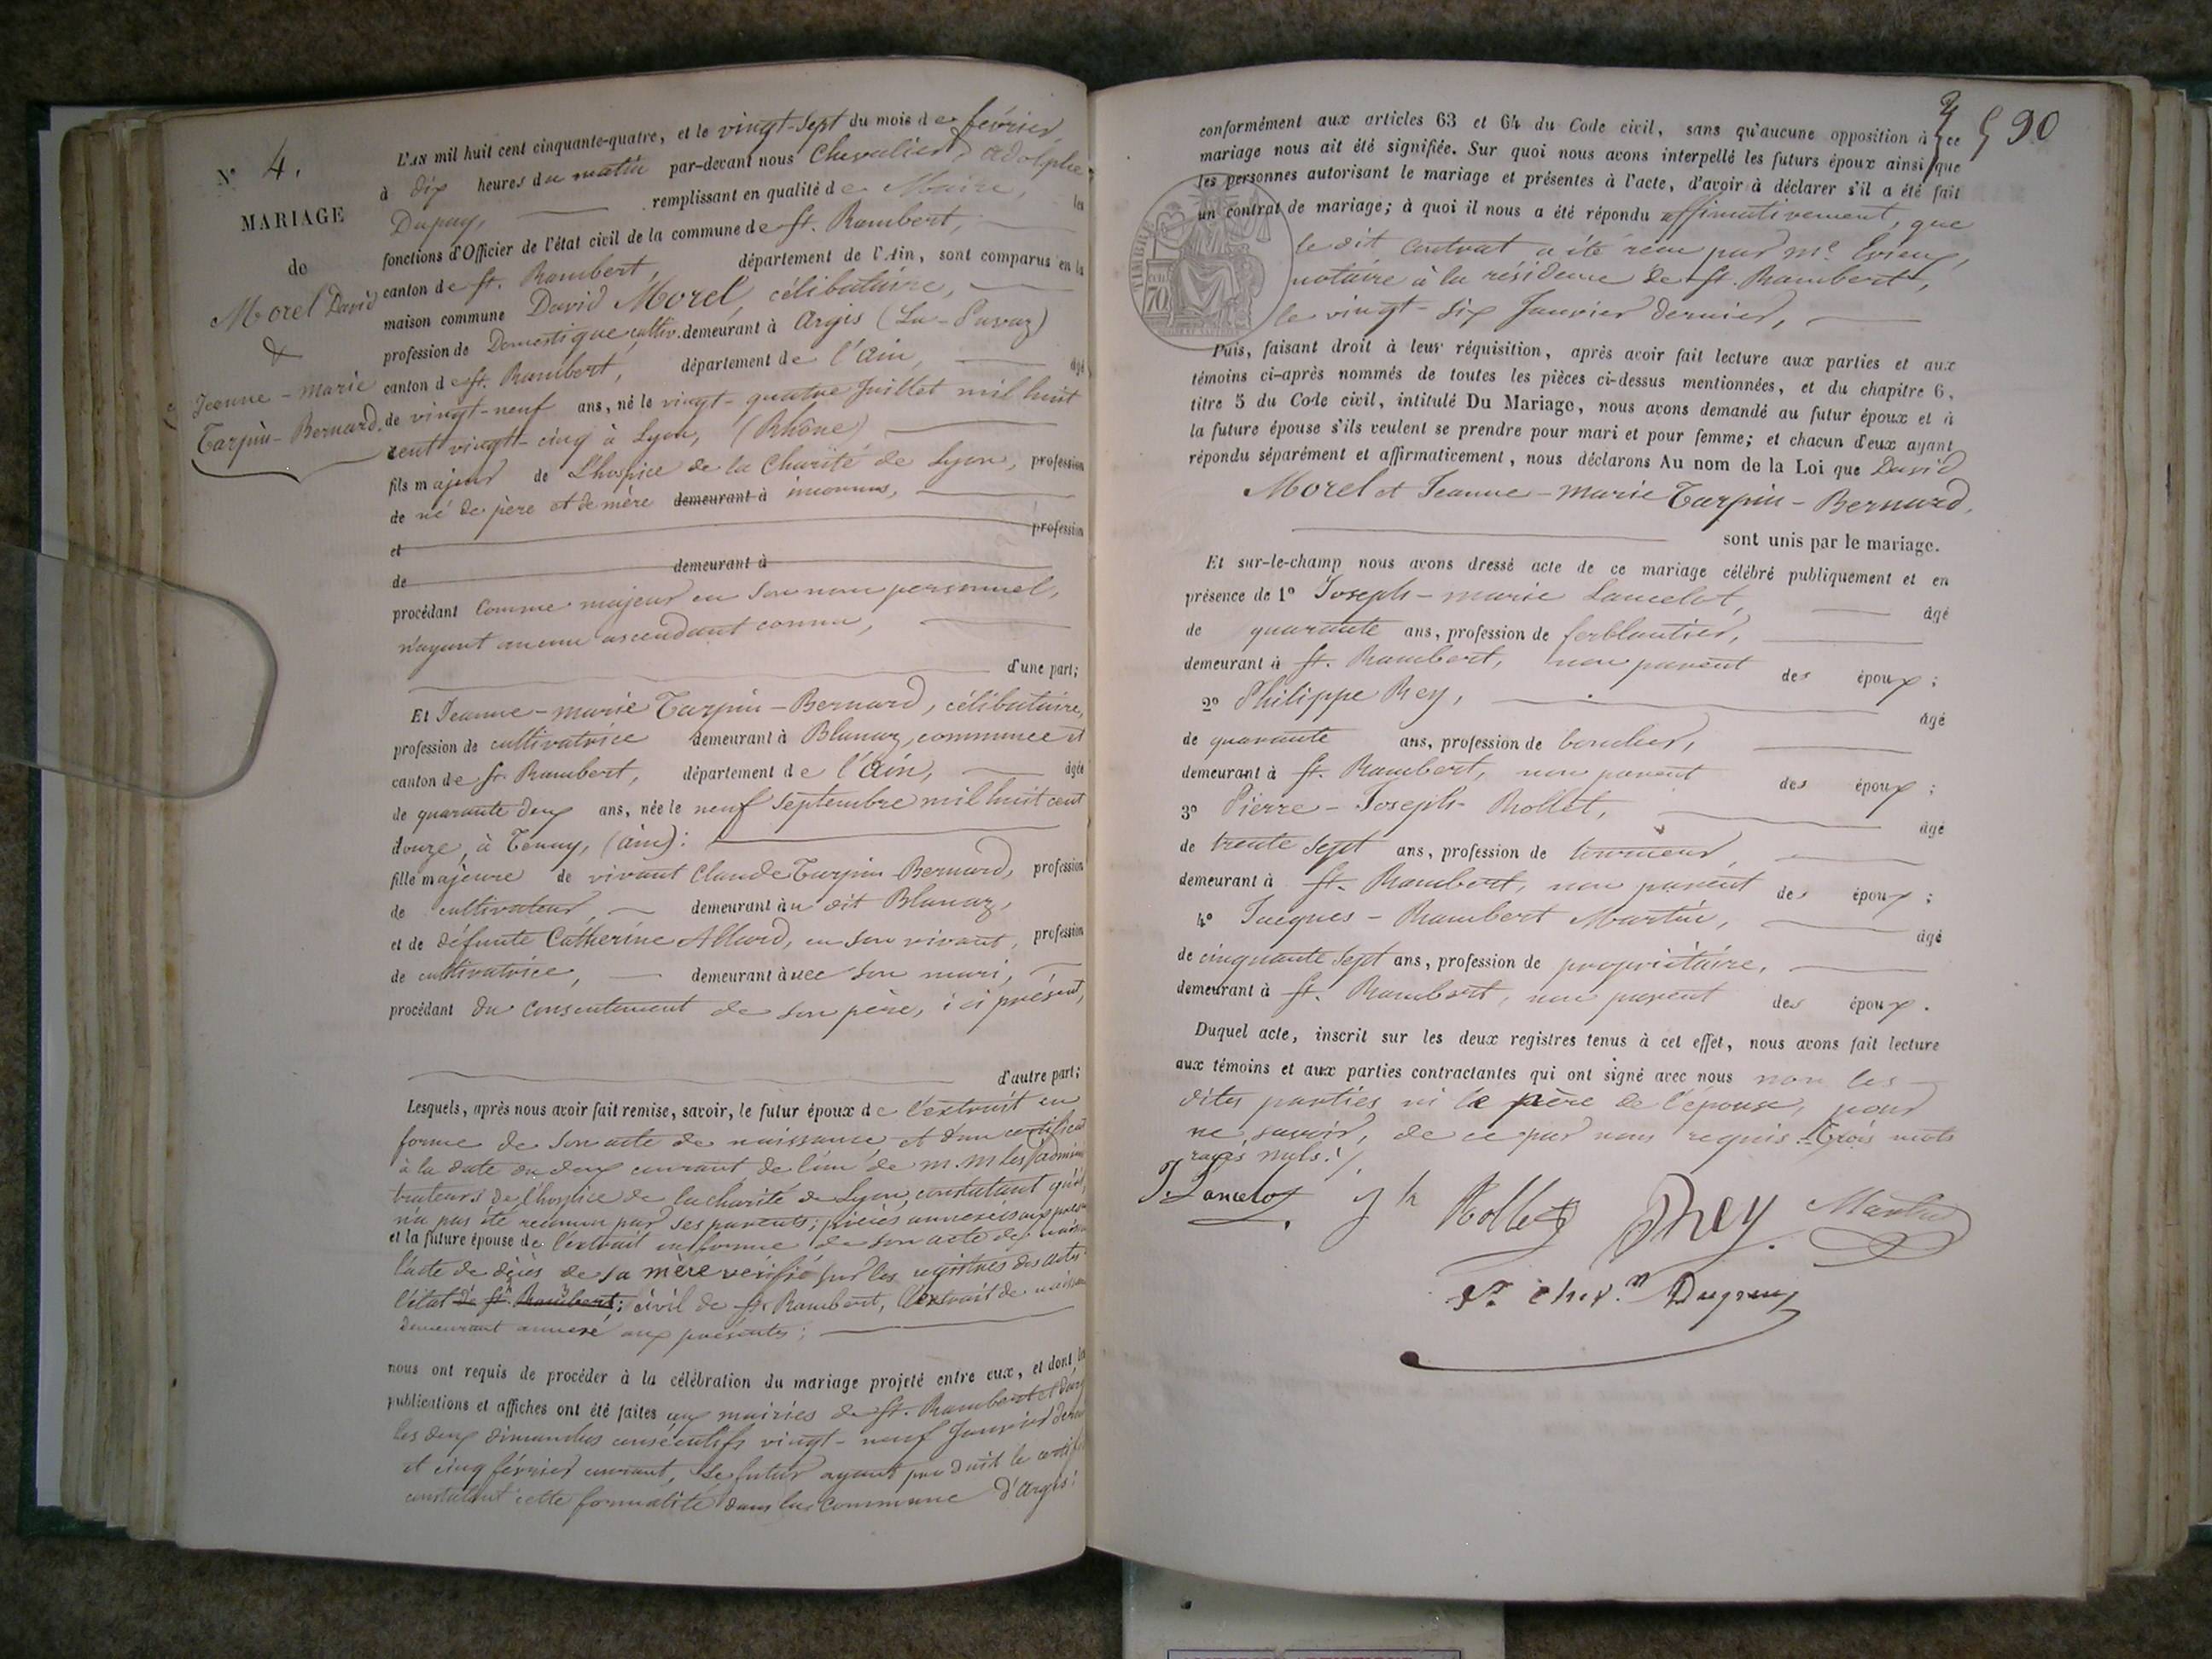 N° 4.
MARIAGE
de
Morel David
&
Jeanne-marie
Tarpin-Bernard.
L'AN mil huit cent cinquante-quatre, et le vingt-sept du mois de février
à dix heures du matin par-devant nous Chevalier, adolphe
Dupuy, remplissant en qualité de Maire, les
fonctions d'Officier de l'état civil de la commune de St. Rambert,
canton de St. Rambert, département de l'Ain, sont comparus en la
maison commune David Morel, célibataire,
profession de Domestique cultiv. demeurant à Argis (La-Savaz)
canton de St. Rambert, département de l'ain, âgé
de vingt-neuf ans, né le vingt-quatre Juillet mil huit
cent vingt-cinq à Lyon, (Rhône)
fils majeur de L'hospice de la Charité de Lyon, profession
de né de père et de mère demeurant à inconnus,
et profession
de demeurant à
procédant comme majeur en son nom personnel,
n'ayant aucun ascendant connu,
d'une part;
Et Jeanne-marie Tarpin-Bernard, célibataire,
profession de cultivatrice demeurant à Blanaz, commune et
canton de St Rambert, département de l'ain, âgée
de quarante deux ans, née le neuf septembre mil huit cent
douze, à Tenay, (ain):
fille majeure de vivant Claude Tarpin-Bernard, profession
de cultivateur, demeurant au dit Blanaz,
et de défunte Catherine Allard, en son vivant, profession
de cultivatrice, demeurant avec son mari,
procédant du consentement de son père, ici présent,
d'autre part;
Lesquels, après nous avoir fait remise, savoir, le futur époux de l'extrait en
forme de son acte de naissance, et d'un certificat
à la date du deux courant de l'un de m.m les admini
trateurs de l'hospice de la charité de Lyon, constatant qu'il
n'a pas été reconnu par ses parents; pièces annexées aux
et la future épouse de l'extrait en forme de son acte de
l'acte de décès de sa mère vérifié sur les registres des actes
l'état de St Rambert; civil de St Rambert, l'extrait de
demeurant annexé aux présentes;
nous ont requis de procéder à la célébration du mariage projeté entre eux, et dont les
publications et affiches ont été faites aux mairies de St. Rambert et
les deux dimanches consécutifs vingt-neuf Janvier
et cinq février courant, le futur ayant produit le
constatant cette formalité dans la commune d'Argis:
90
conformément aux articles 63 et 64 du Code civil, sans qu'aucune opposition à ce
mariage nous ait été signifiée. Sur quoi nous avons interpellé les futurs époux ainsi que
les personnes autorisant le mariage et présentes à l'acte, d'avoir à déclarer s'il a été fait
un contrat de mariage; à quoi il nous a été répondu affirmativement, que
le dit contrat a été reçu par me.
notaire à la résidence de St. Rambert,
le vingt-six Janvier dernier,
TIMBRE
70
Puis, faisant droit à leur réquisition, après avoir fait lecture aux parties et aux
témoins ci-après nommés de toutes les pièces ci-dessus mentionnées, et du chapitre 6,
titre 5 du Code civil, intitulé Du Mariage, nous avons demandé au futur époux et à
la future épouse s'ils veulent se prendre pour mari et pour femme; et chacun d'eux ayant
répondu séparément et affirmativement, nous déclarons Au nom de la Loi que David
Morel et Jeanne-marie Tarpin-Bernard,
sont unis par le mariage.
Et sur-le-champ nous avons dressé acte de ce mariage célébré publiquement et en
présence de 1° Joseph-marie Lancelot, âgé
de quarante ans, profession de ferblantier,
demeurant à St. Rambert, non parent des époux;
2° Philippe Rey, âgé
de quarante ans, profession de boucher,
demeurant à St. Rambert, non parent des époux;
3° Pierre-Joseph-Rollet, âgé
de trente sept ans, profession de tourneur,
demeurant à St. Rambert, non parent des époux;
4° Jacques-Rambert Martin, âgé
de cinquante sept ans, profession de propriétaire,
demeurant à St. Rambert, non parent des époux.
Duquel acte, inscrit sur les deux registres tenus à cet effet, nous avons fait lecture
aux témoins et aux parties contractantes qui ont signé avec nous non les
dites parties ni le père de l'épouse, pour
ne savoir, de ce par nous requis. Trois mots
rayés nuls.
J. Lancelot Rollet Rey. Martin
Dupuy